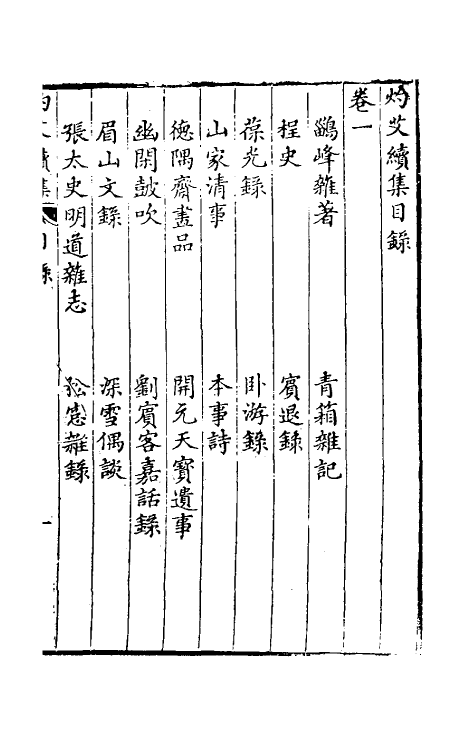 灼艾續集目錄
卷一
鷁峰雜著　青箱雜記
桯史　賓退錄
葆光錄　臥游錄
山家清事　本事詩
德隅齋畫品　開元天寶遺事
幽閒鼓吹　劉賓客嘉話錄
眉山文錄　深雪偶談
張太史明道雜志　雜錄
灼艾續集　目錄　一